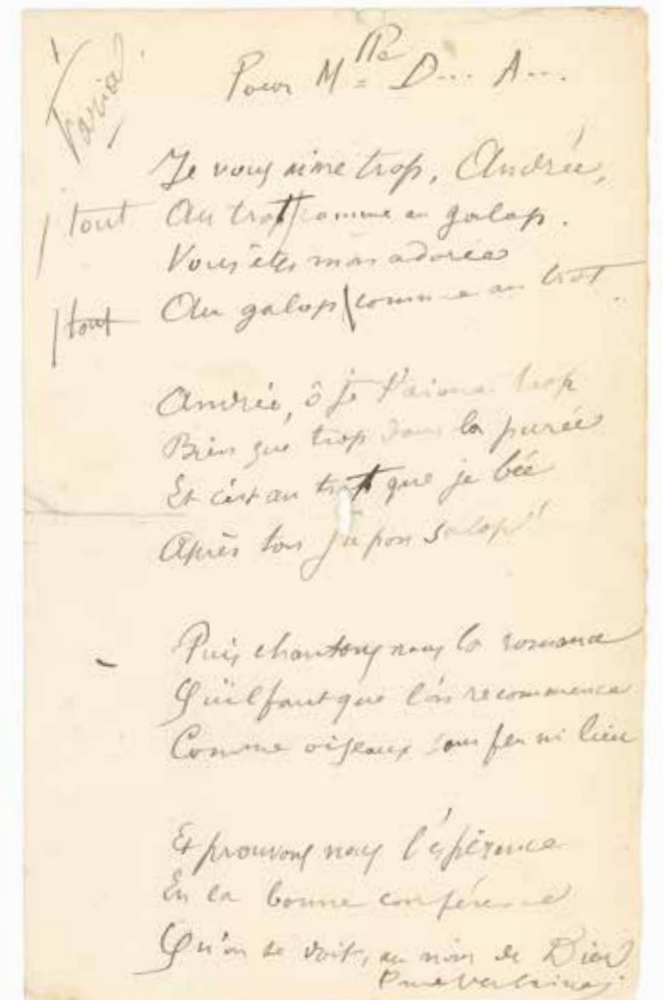 Varia
Pour Mlle D... A...
Je vous aime trop, Andrée,
tout Au trot comme au galop.
Vous êtes mon adorée
tout Au galop comme au trot.
Andrée, ô je t'aime trop
Bien que trop dans la purée
Et c'est au trot que je bée
Après ton jupon salop!
Puis chantons nous la romance
Qu'il faut que l'on recommence
Comme oiseaux sans feu ni lieu
Et prouvons nous l'espérance
En la bonne conférence
Qu'on se doit, au nom de Dieu
Paul Verlaine